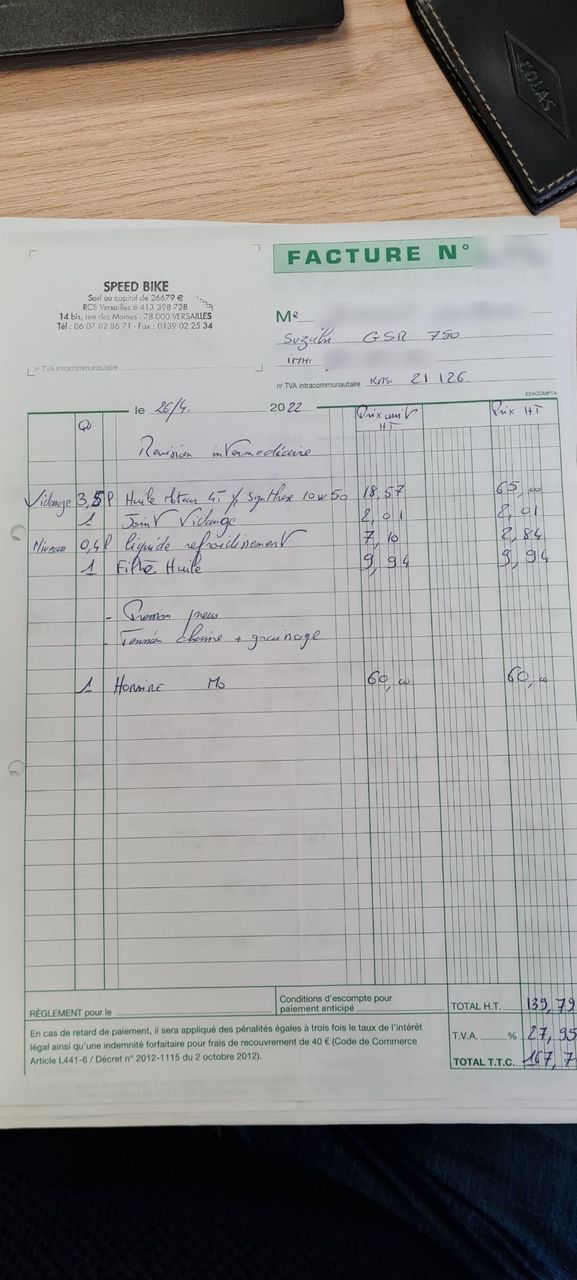 COLAS
FACTURE N°
SPEED BIKE
Sarl au capital de 26679 €
RCS Versailles B 413 398 728
14 bis, rue des Moines - 78 000 VERSAILLES
Tél : 06 07 02 86 71 - Fax : 0139 02 25 34
MR
Suzuki GSR 750
IMM:
n° TVA intracommunautaire
n° TVA intracommunautaire KMS: 21 126.
EXACOMPTA
le 26/4. 2022
Q Prix unit HT Prix HT
Revision intermediaire
Vidange 3,5 l Huile Moteur 4T ½ Synthese 10w50 18,57 65,00
1 Joint Vidange 2,01 2,01
Niveau 0,4 l liquide refroidissement 7,10 2,84
1 Filtre Huile 9,94 9,94
- Pression pneus
- Tension chaine + graissage
1 Horaire Mo 60,00 60,00
RÈGLEMENT pour le
Conditions d'escompte pour
paiement anticipé
TOTAL H.T. 139,79
En cas de retard de paiement, il sera appliqué des pénalités égales à trois fois le taux de l'intérêt
légal ainsi qu'une indemnité forfaitaire pour frais de recouvrement de 40 € (Code de Commerce
Article L441-6 / Décret n° 2012-1115 du 2 octobre 2012).
T.V.A. % 27,95
TOTAL T.T.C. 167,7